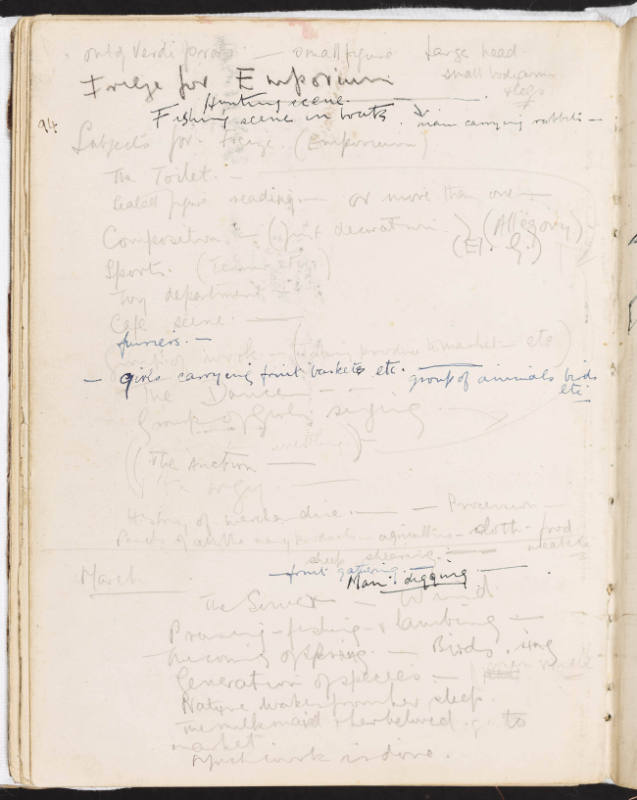 only Verdi — small figure large head
small body arms
& legs
Frieze for Emporium
Hunting scene.
Fishing scene in boats. man carrying rabbits —
94
Subjects for Frieze. (Emporium)
The Toilet. —
Seated figure reading — or more than one —
Composition — (fruit decoration) (Allegory) —
(El. G.)
Sports. (Tennis etc)
Toy department
Cafe scene. —
furriers. —
work — taking produce to market — etc)
— girls carrying fruit baskets etc. group of animals birds
etc
The Dance — —
Group of Girls singing.
wrestling)
(The Auction —
History of merchandise. — — Procession —
Panels of all the many products — agriculture — cloth — food
sheep shearing. — meat etc
fruit gathering —
Man digging —
March
The Sower — Wind
Pruning — fishing — & lambing —
The coming of Spring. — Birds sing
Generation of species —
Nature wakes from her sleep.
The milkmaid & her beloved to
market
Much work is done.